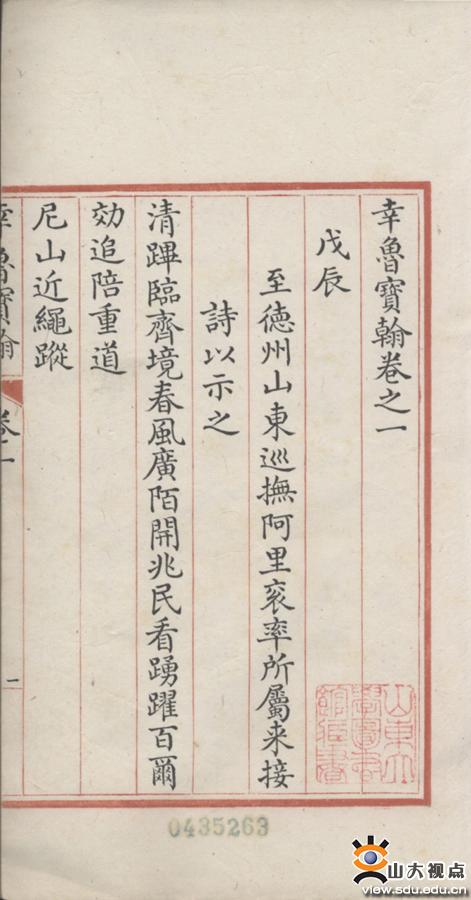 幸魯寶翰卷之一
戊辰
至德州山東巡撫阿里衮率所屬来接
詩以示之
清蹕臨齊境春風廣陌開兆民看踴躍百爾
効追陪重道
尼山近繩蹤
幸魯寶翰 卷一
一
山東大學圖書館珍書
0435263
山大视点
view.sdu.edu.cn